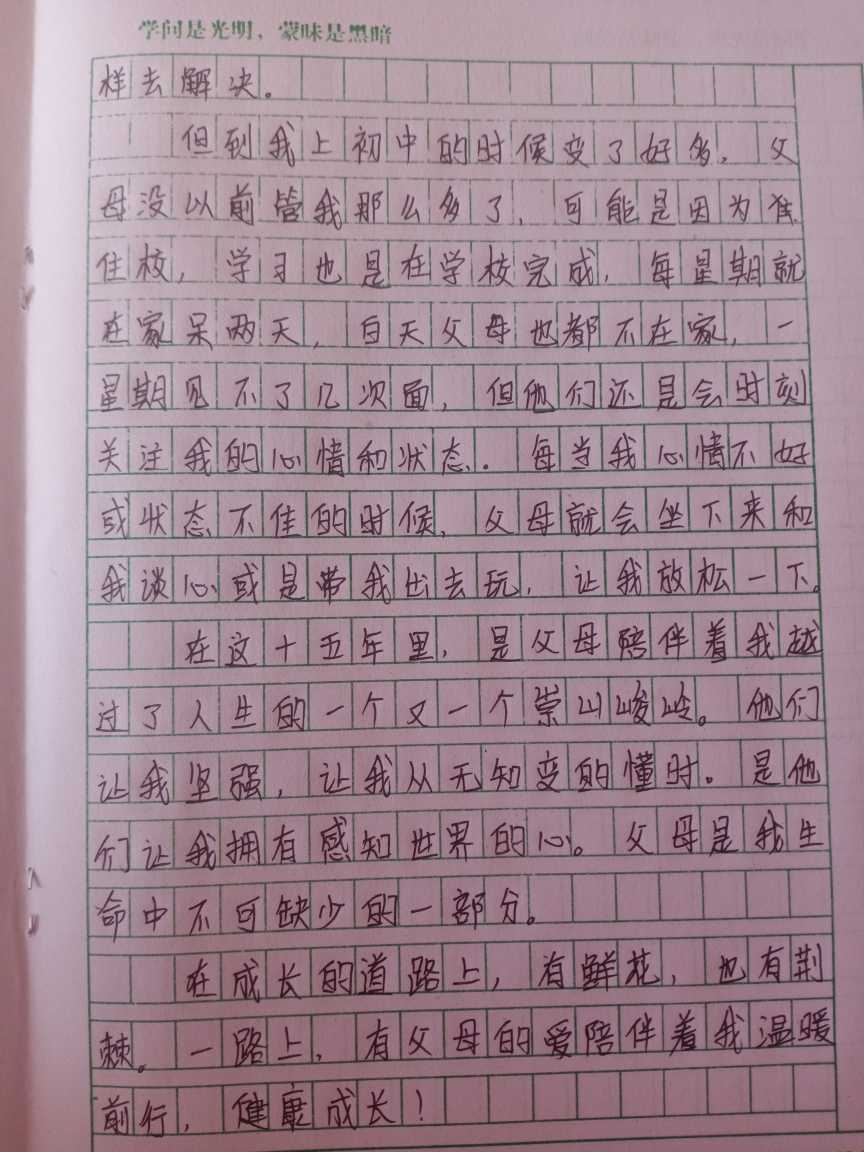 学问是光明，蒙昧是黑暗
样去解决。
但到我上初中的时候变了好多，父
母没以前管我那么多了，可能是因为
住校，学习也是在学校完成，每星期就
在家呆两天，白天父母也都不在家，一
星期见不了几次面，但他们还是会时刻
关注我的心情和状态．每当我心情不好
或状态不佳的时候，父母就会坐下来和
我谈心或是带我出去玩，让我放松一下。
在这十五年里，是父母陪伴着我越
过了人生的一个又一个崇山峻岭。他们
让我坚强，让我从无知变的懂时。是他
们让我拥有感知世界的心。父母是我生
命中不可缺少的一部分。
在成长的道路上，有鲜花，也有荆
棘。一路上，有父母的爱陪伴着我温暖
前行，健康成长！